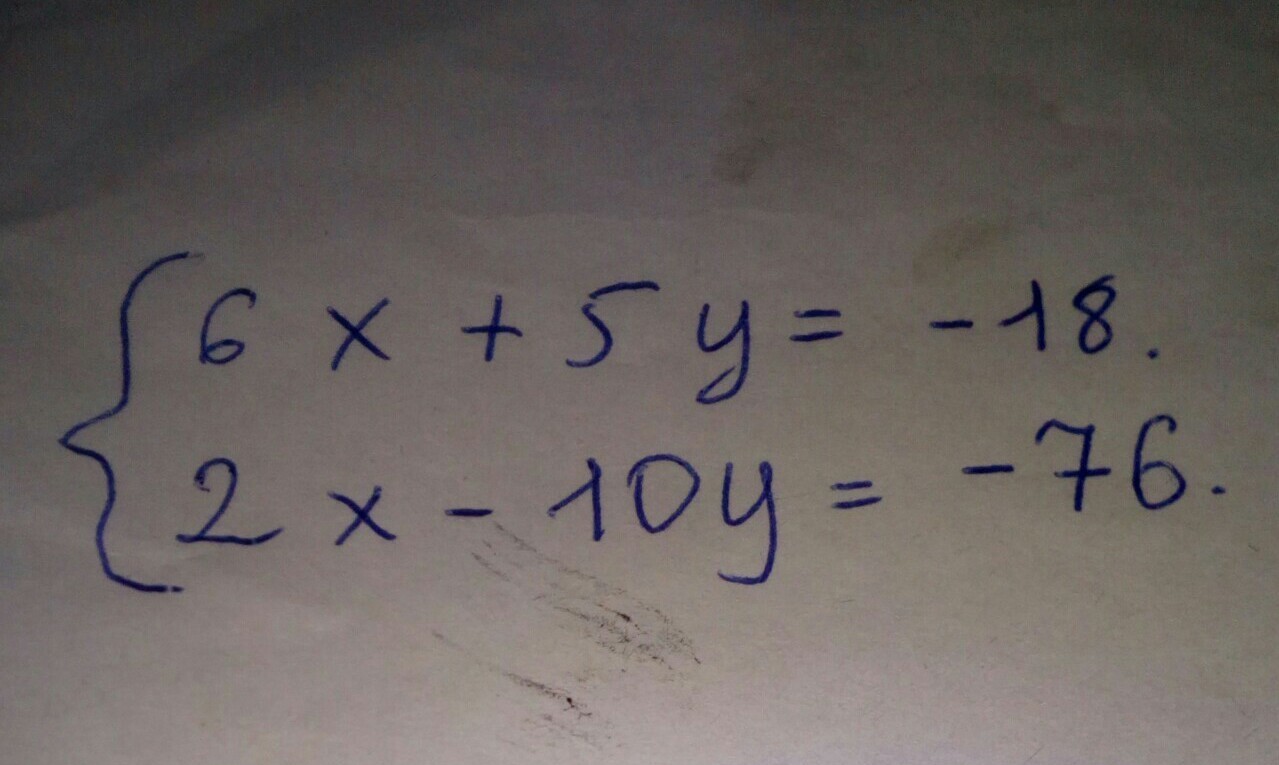 6x + 5y = -18.
2x - 10y = -76.